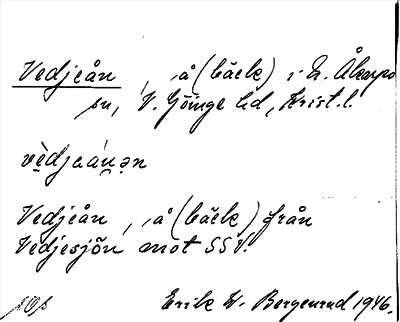 Vedjeån, å (bäck) i N. Åkarps
sn, V. Göinge hd, Krist. l.
vèdjaánən
Vedjeån, å (bäck) från
Vedjesjön mot SSV.
Erik W. Bergenrud 1946.